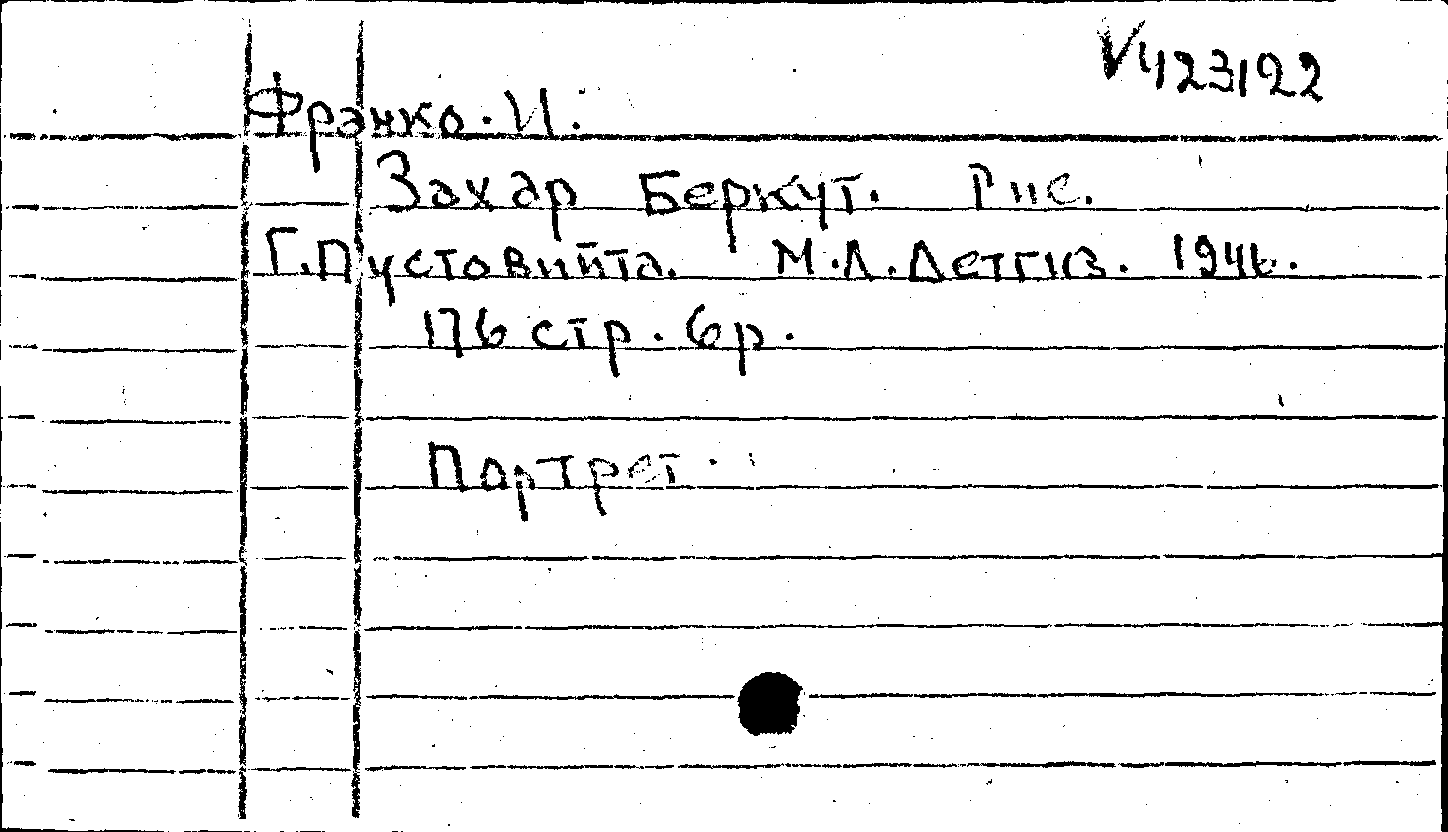 V423122
Франко. И.
Захар Беркут. Рис.
Г.Пустовийта. М.Л. Детгиз. 1946.
176 стр. 6р.
Портрет.